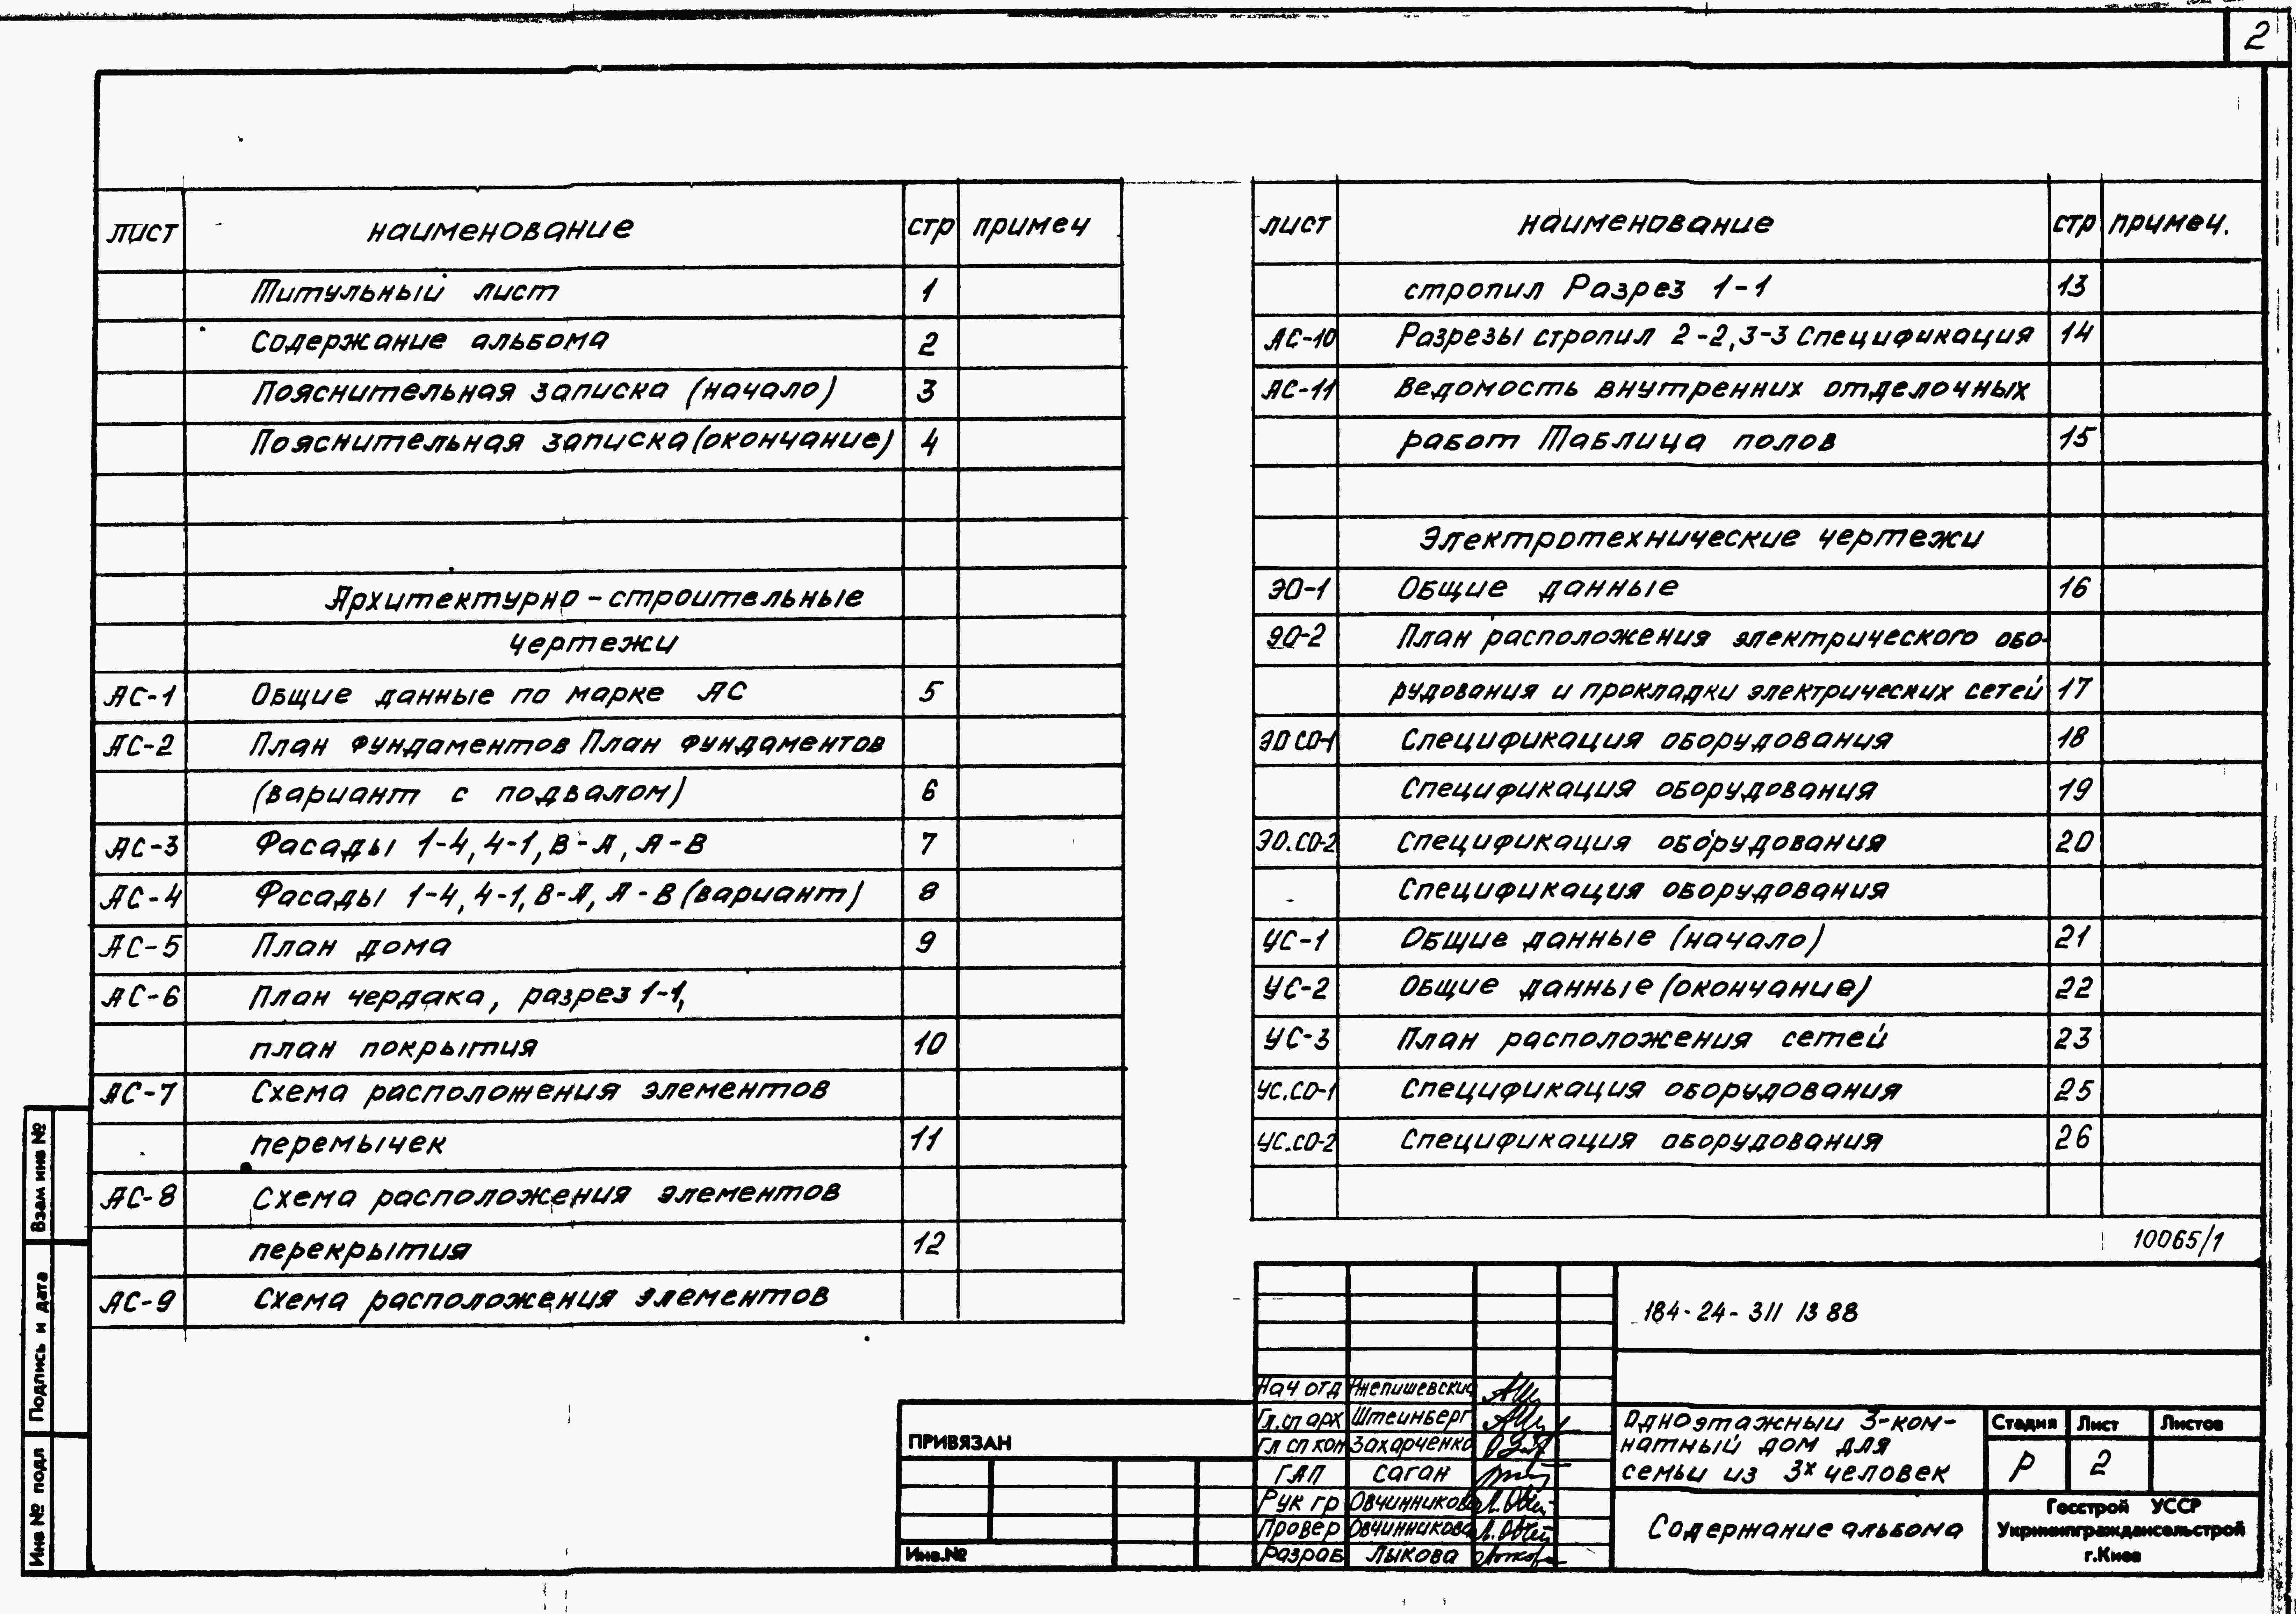 2
лист наименование стр примеч
Титульный лист 1
Содержание альбома 2
Пояснительная записка (начало) 3
Пояснительная записка (окончание) 4
Архитектурно-строительные
чертежи
АС-1 Общие данные по марке АС 5
АС-2 План фундаментов План фундаментов
(вариант с подвалом) 6
АС-3 Фасады 1-4, 4-1, В-А, А-В 7
АС-4 Фасады 1-4, 4-1, В-А, А-В (вариант) 8
АС-5 План дома 9
АС-6 План чердака, разрез 1-1,
план покрытия 10
АС-7 Схема расположения элементов
перемычек 11
АС-8 Схема расположения элементов
перекрытия 12
АС-9 Схема расположения элементов
лист наименование стр примеч.
стропил Разрез 1-1 13
АС-10 Разрезы стропил 2-2, 3-3 Спецификация 14
АС-11 Ведомость внутренних отделочных
работ Таблица полов 15
Электротехнические чертежи
ЭО-1 Общие данные 16
ЭО-2 План расположения электрического обо-
рудования и прокладки электрических сетей 17
ЭО СО-1 Спецификация оборудования 18
Спецификация оборудования 19
ЭО.СО-2 Спецификация оборудования 20
Спецификация оборудования
УС-1 Общие данные (начало) 21
УС-2 Общие данные (окончание) 22
УС-3 План расположения сетей 23
УС.СО-1 Спецификация оборудования 25
УС.СО-2 Спецификация оборудования 26
10065/1
184-24-311 13 88
Нач отд
Гл.сп арх Штеинберг
Гл сп кон Захарченко
ГАП Саган
Рук гр Овчинникова
Провер Овчинникова
Разраб Лыкова
Одноэтажный 3-ком-
натный дом для
семьи из 3х человек
Стадия Лист Листов
Р 2
Содержание альбома
Госстрой УССР
Укрниипграждансельстрой
г.Киев
ПРИВЯЗАН
Инв.№
Взам инв №
Подпись и дата
Инв № подл